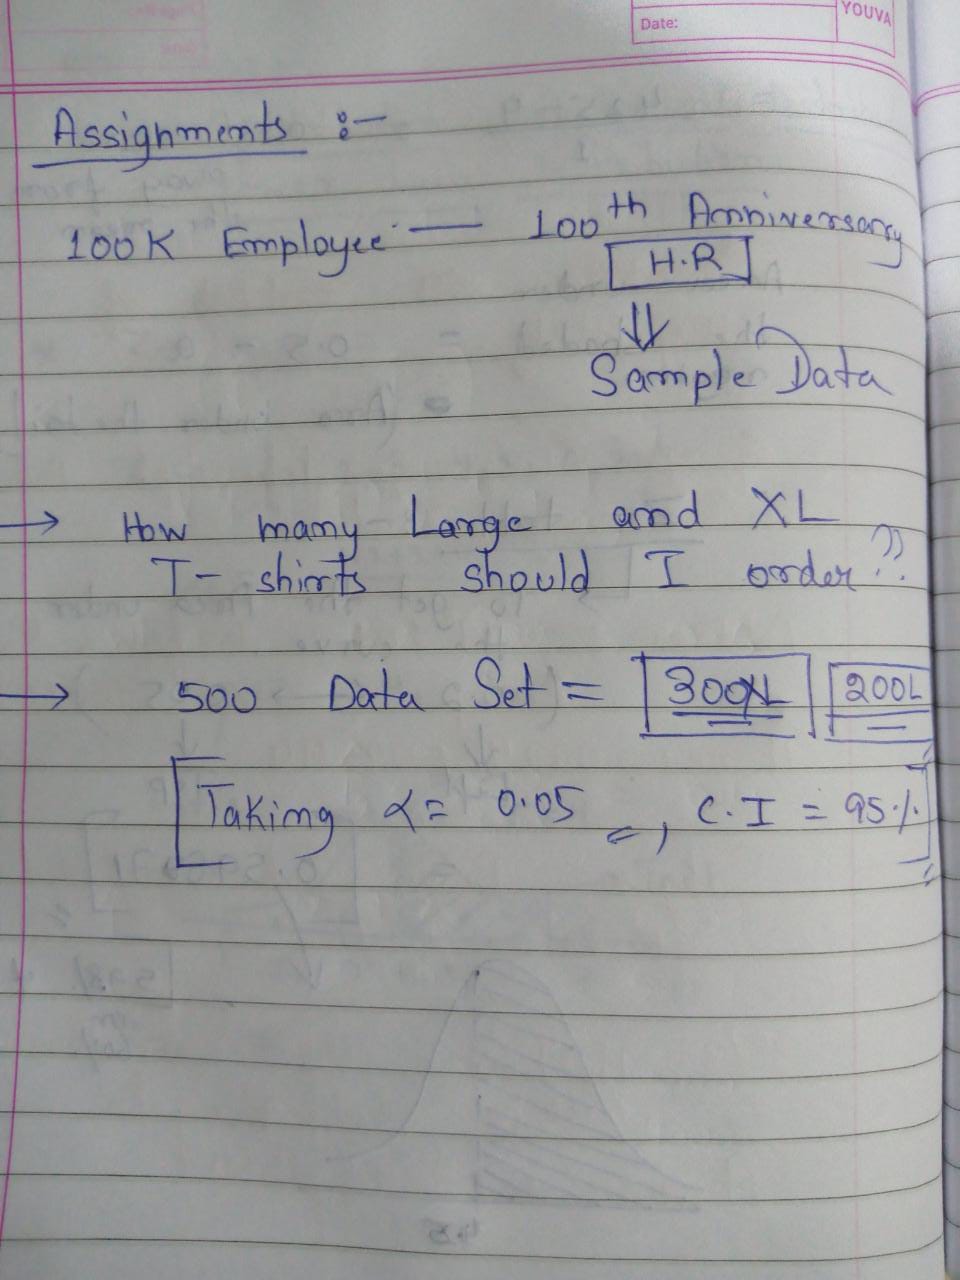 YOUVA
Date:
Assignments :-
100K Employee — 100th Anniversary
H.R
⇓
Sample Data
→ How many Large and XL
T- shirts should I order??
→ 500 Data Set = 300XL 200L
[Taking α = 0.05, C.I = 95%]